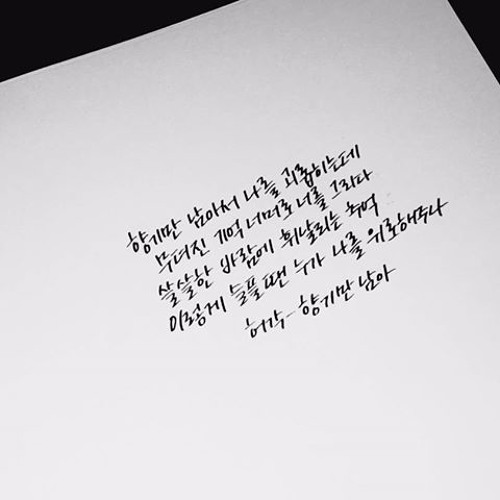 향기만 남아서 나를 괴롭히는데
무뎌진 기억 너머로 너를 그리다
쌀쌀한 바람에 휘날리는 추억
이렇게 슬플땐 누가 나를 위로해주나
허각- 향기만 남아